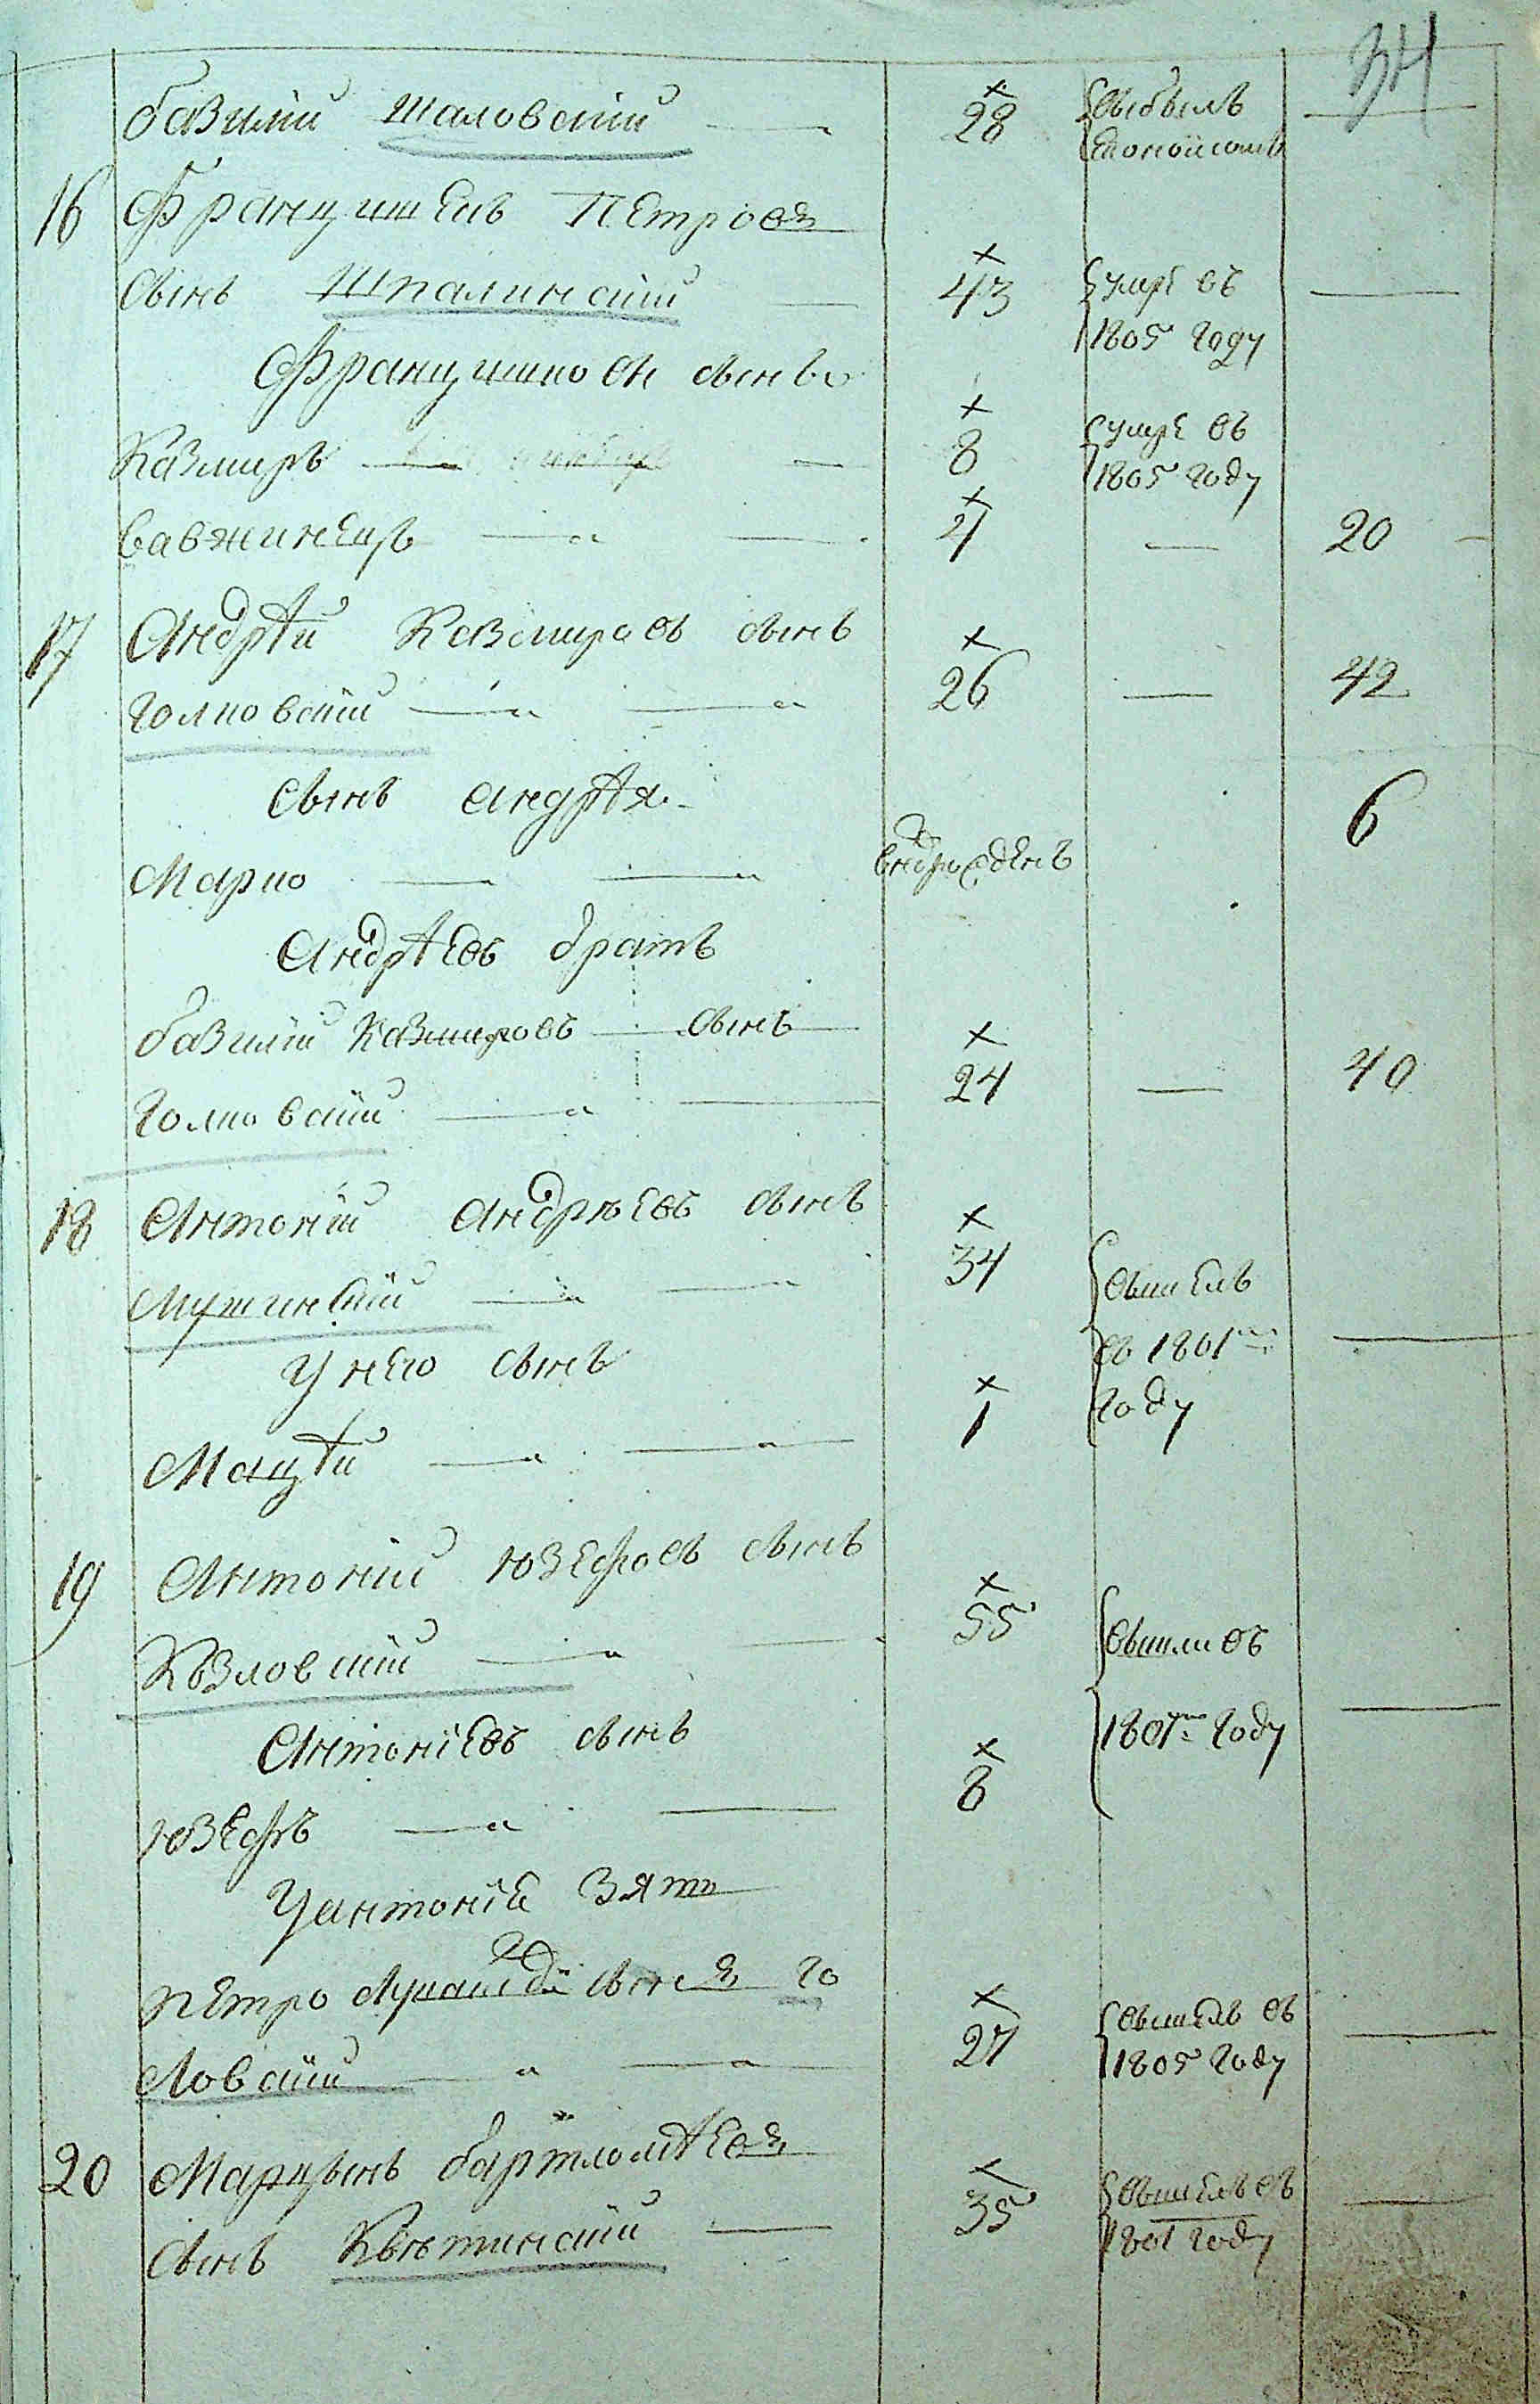 34
Базилій Шаловскій — 28 выбылъ —
16 Францишекъ Петровъ
сынъ Шпалинскій — 43 умре въ —
1805 году
Францишковы сыновья
Казмиръ — 8 умре въ
1805 году
Вавжинецъ — 4 — 20
17 Андрѣй Казмировъ сынъ
Голковскій — 26 — 42
сынъ Андрѣя
Марко — 6
Андрѣевъ братъ
Базилій Казмировъ сынъ
Голковскій — 24 — 40
18 Антоній Андрѣевъ сынъ
34
вышелъ
въ 1801мъ —
У него сынъ
1 году
Мацѣй —
19 Антоній Юзефовъ сынъ
Козловскій — 55 вышли въ
1801мъ году —
Антоніевъ сынъ
Юзефъ — 8
У Антонія зять
Петро сынъ Го
ловскій — 27 вышелъ въ
1805 году —
20 Марцынъ Бартломѣевъ
сынъ Квятинскій — 35 вышелъ въ
1801 году —